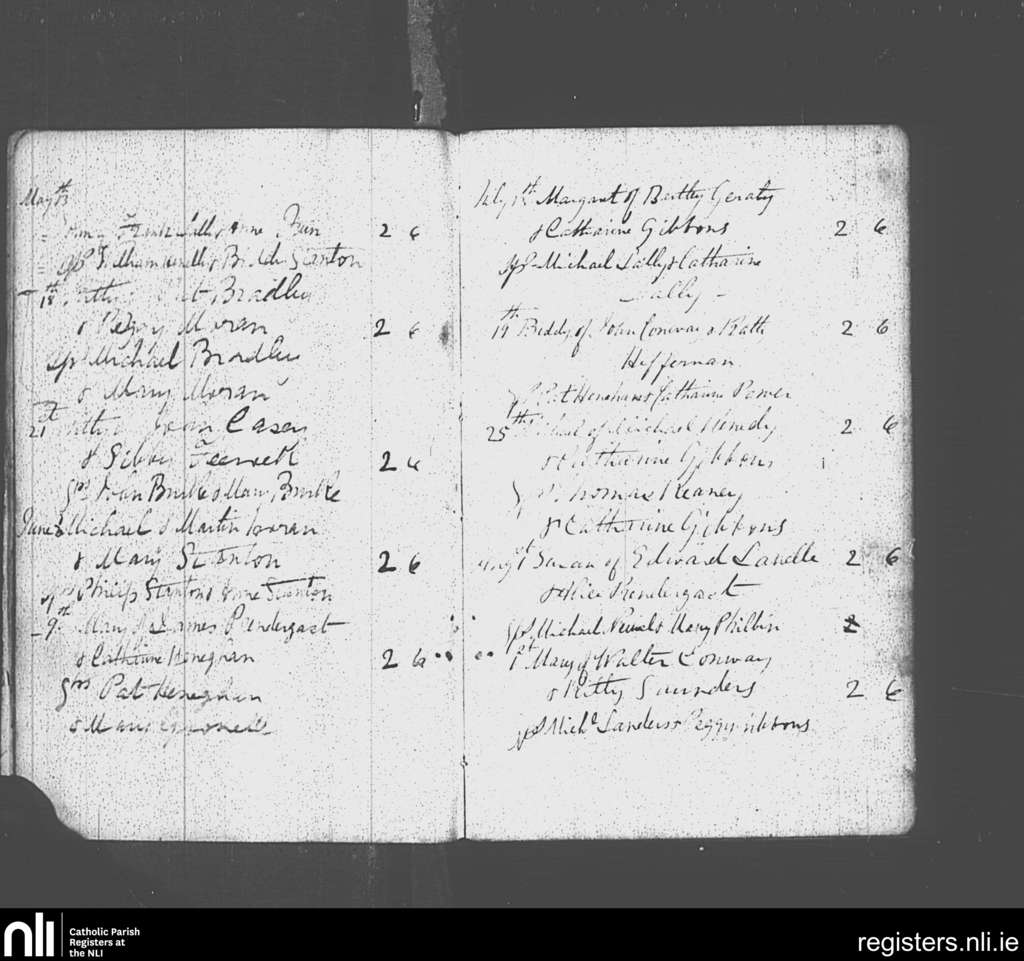 May 13th
Frank Lally & Anne 2 6
& Biddy Stanton
18th Bradley
& Peggy Moran 2 6
Sps Michael Bradley
& Mary Moran
21st John Casey
& Sibby 2 6
Sps John Burke & Mary Burke
June Michael of Martin Horan
& Mary Stanton 2 6
Sps Philip Stanton & Anne Stanton
9th Mary of James Prendergast
& Catherine Heneghan 2 6
Sps Pat Heneghan
& Mary
July 1th Margaret of Bartley Geraty
& Catharine Gibbons 2 6
Sps Michael Lally & Catharine
Lally
19th Biddy of John Conway & Kath 2 6
Heffernan
Sps Pat Henehan & Catharine Power
25th of Michael Kenedy 2 6
& Catharine Gibbons
Sps Thomas Keaney
& Catharine Gibbons
Augt 1st Susan of Edward Lavelle 2 6
& Prendergast
Sps Michael & Mary Philbin 2
1st Mary of Walter Conway
& Kitty Saunders 2 6
Sps Michl Landers & Peggy Gibbons
nli
Catholic Parish
Registers at
the NLI
registers.nli.ie